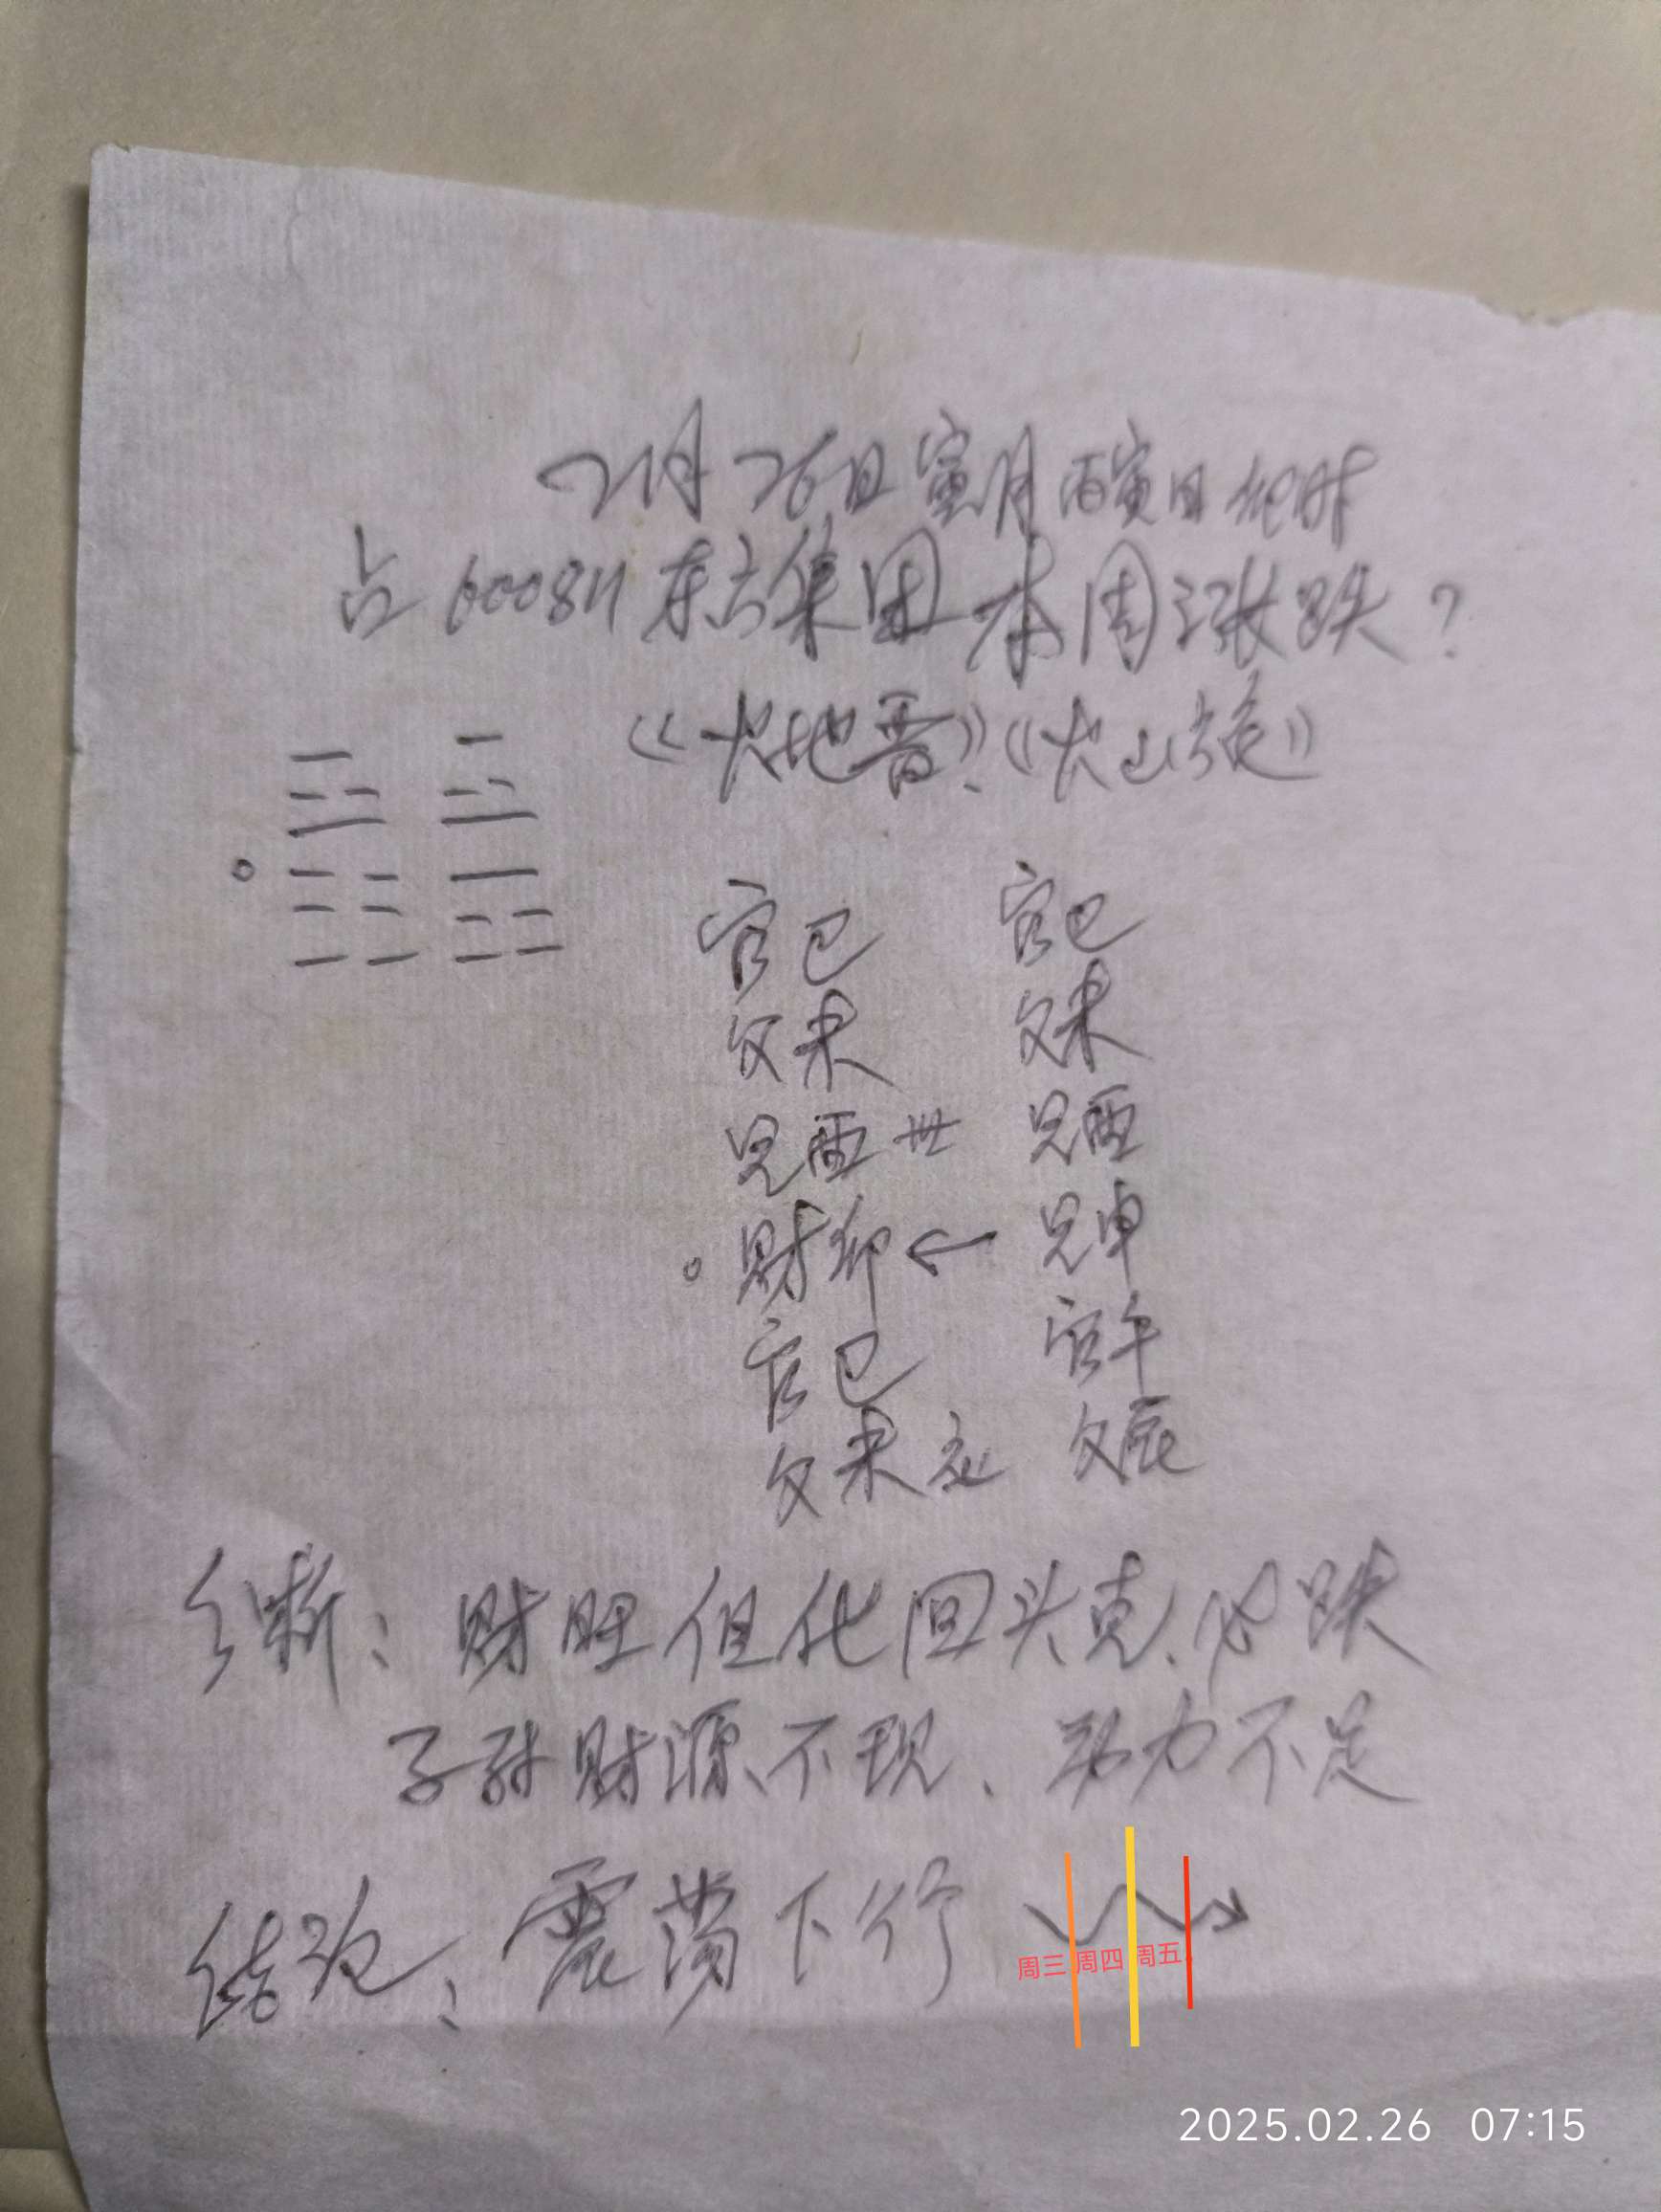 2月26日寅月丙寅日 时
占600811东方集团本周涨跌?
《火地晋》、《火山旅》
官巳 官巳
父未 父未
兄酉 世 兄酉
财卯 ← 兄申
官巳 官午
父未 应 父辰
断: 财旺但化回头克、必跌
子孙财源不现、动力不足
结论: 震荡下行
周三 周四 周五
2025.02.26 07:15